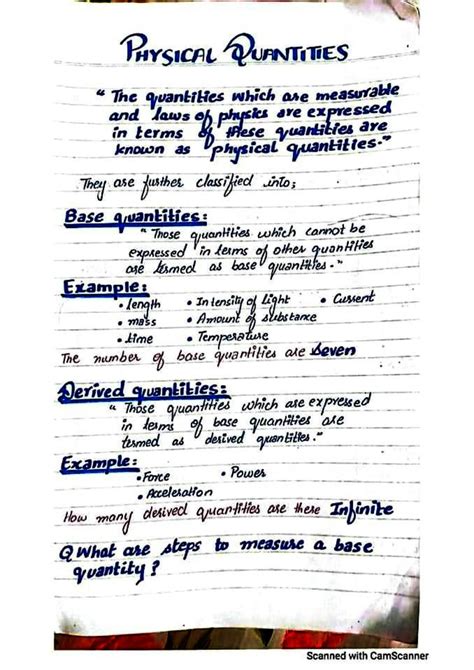 PHYSICAL QUANTITIES
“ The quantities which are measurable
and laws of physics are expressed
in terms of these quantities are
known as physical quantities.”
They are further classified into;
Base quantities:
“ Those quantities which cannot be
expressed in terms of other quantities
are termed as base quantities.”
Example:
• length • Intensity of light • Current
• mass • Amount of substance
• time • Temperature
The number of base quantities are Seven
Derived quantities:
“ Those quantities which are expressed
in terms of base quantities are
termed as derived quantities.”
Example:
• Force • Power
• Acceleration
How many derived quantities are there Infinite
Q What are steps to measure a base
quantity ?
Scanned with CamScanner